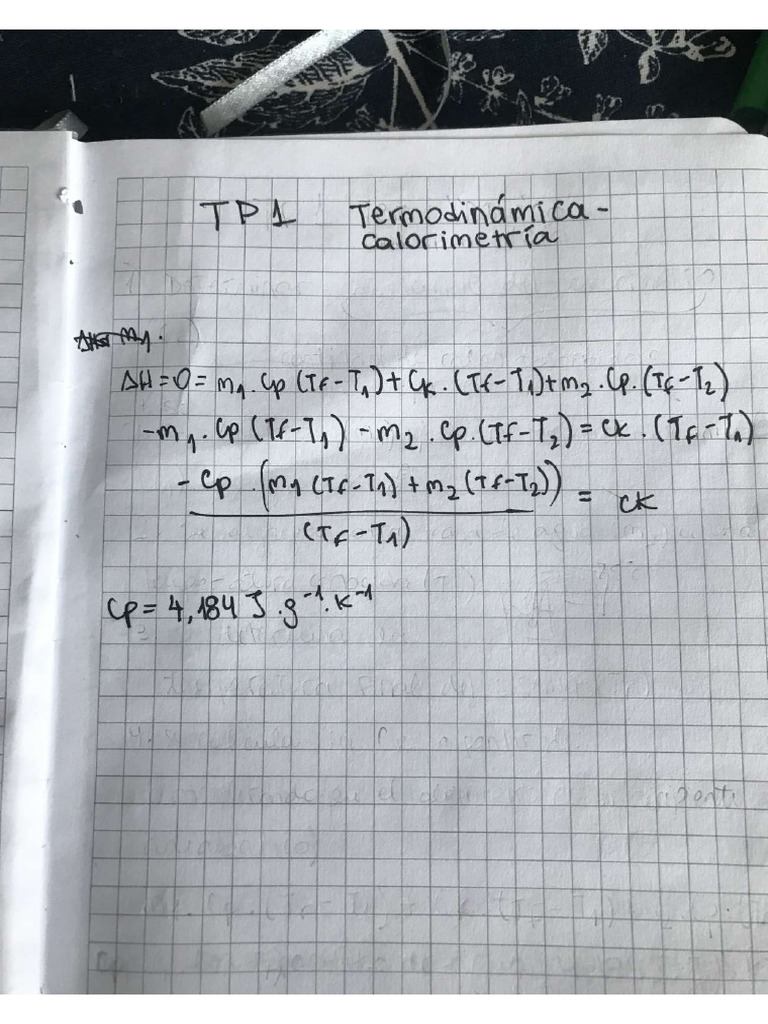 TP1 Termodinámica -
calorimetría
ΔH=0= m₁. Cp (Tf-T₁)+ Ck. (Tf-T₁)+m₂.Cp.(Tf-T₂)
-m₁. Cp (Tf-T₁) -m₂.Cp.(Tf-T₂)= Ck.(Tf-T₁)
-Cp.(m₁(Tf-T₁)+m₂(Tf-T₂)) = CK
(Tf-T₁)
Cp= 4,184 J.g⁻¹.K⁻¹